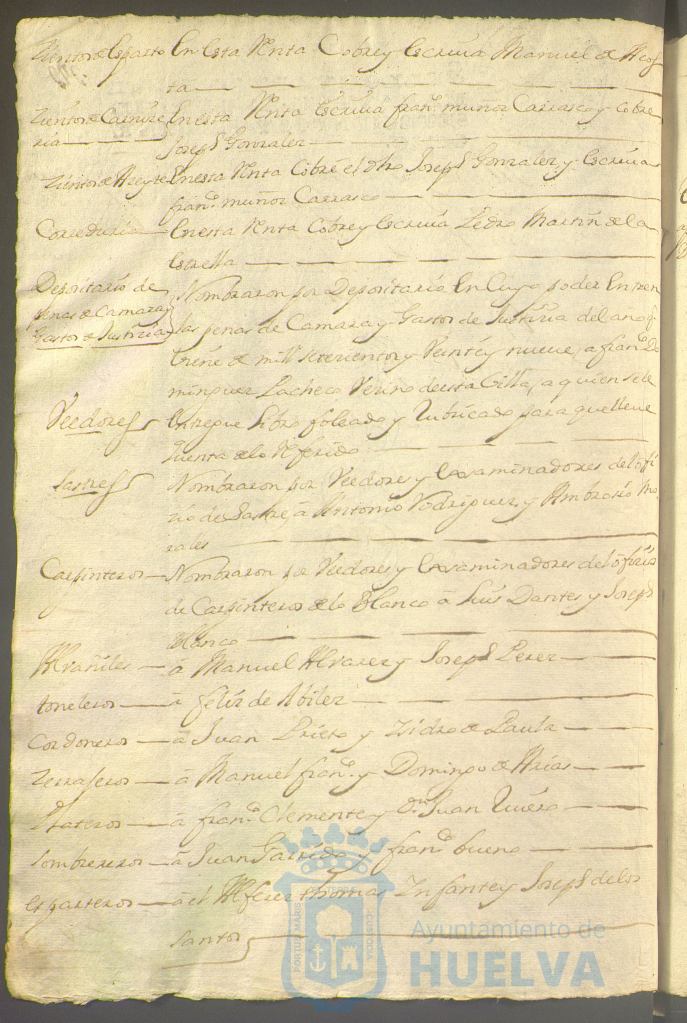 Zientos de Esparto En esta Renta Cobre y escriua Manuel de Acos
ta
Zientos de Carnize En esta Renta escriua franco muñoz Carrasco y cobre
ria Joseph Gonzalez
Zientos de Azeyte En esta Renta Cobre el dho Joseph Gonzalez y escriua
franco muñoz Carrasco
Correduria En esta Renta Cobre y escriua Pedro Martin de la
estrella
Depositario de Nombraron por Depositario En Cuyo poder Entren
penas de Camara y las penas de Camara y Gastos de Justizia del año q
Gastos de Justizia viene de mill setezientos y Veinte y nueve, a franco Do
minguez Pacheco Vezino de esta Villa, a quien se le
Veedores entregue Libro foleado y Rubricado para que lleve
quenta de lo Referido
Sastres Nombraron por Veedores y exsaminadores del ofi
zio de Sastre, a Antonio Rodriguez, y Ambrosio Mo
rales
Carpinteros Nombraron por Veedores y exsaminadores del ofizio
de Carpinteros de lo Blanco â Luis Dantes y Joseph
Blanco
Alvañiles â Manuel Alvarez y Joseph Perez
toneleros â feliz de Abiler
Cordoneros â Juan Prieto y Ysidro de Paula
Zerrajeros â Manuel franco y Domingo de Arias
Plateros â franco Clemente y Dn Juan
Sombrereros â Juan Garrido y franco bueno
esparteros â el Alferez thomas Infante y Joseph de los
Santos
PORTUS MARIS
CUSTODIA
Ayuntamiento de
HUELVA